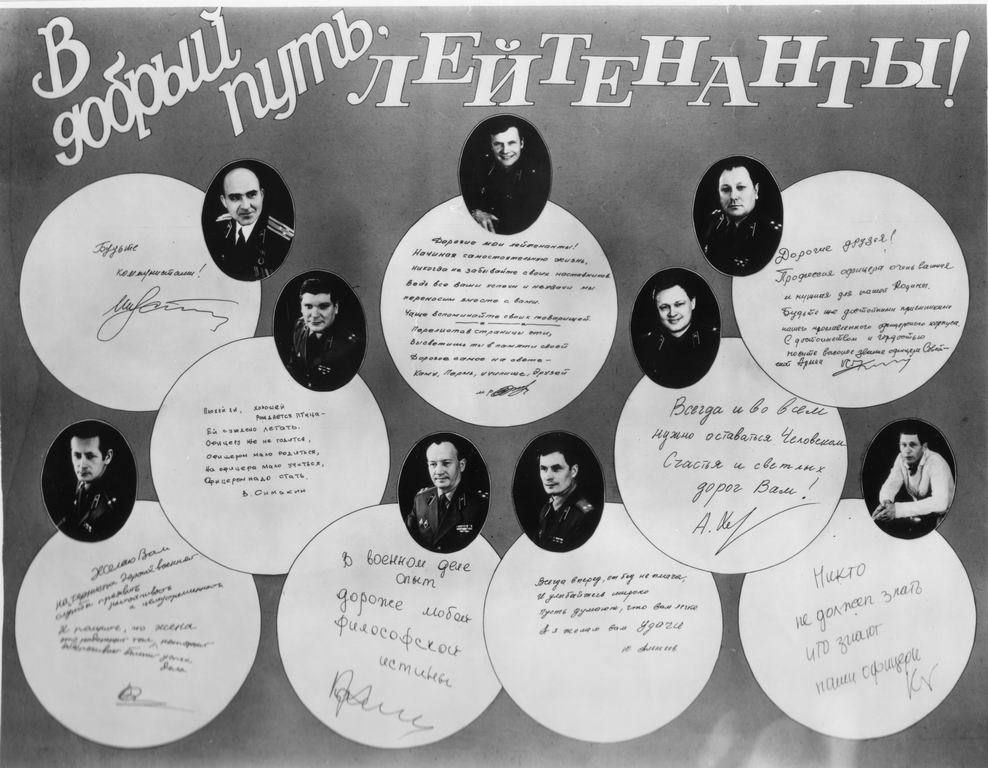 В
добрый
путь,
ЛЕЙТЕНАНТЫ!
Будьте
коммунистами!
Дорогие мои лейтенанты!
Начиная самостоятельную жизнь,
никогда не забывайте своих наставников
Ведь все ваши успехи и неудачи мы
переносим вместе с вами.
Чаще вспоминайте своих товарищей.
Перелистав страницы эти,
Высветишь ты в памяти своей
Дорогое самое на свете –
Каму, Пермь, училище, друзей
Дорогие друзья!
Профессия офицера очень важная
и нужная для нашей Родины.
Будьте же достойными
нашего прославленного офицерского корпуса
С достоинством и гордостью
носите высокое звание офицера Совет-
ской Армии
хорошей
рождается птица –
Ей суждено летать.
Офицеру же не годится,
Офицером мало родиться,
На офицера мало учиться,
Офицером надо стать.
В. Симакин
Всегда и во всём
нужно оставаться Человеком
Счастья и светлых
дорог Вам!
Желаю Вам
на тернистой дороге военной
службы
И помните, что жена
В военном деле
опыт
дороже любой
философской
истины
Всегда вперед, от бед не плача,
И улыбайтесь широко
Пусть думают, что вам легко
А я желаю вам Удачи
Ю Алексеев
Никто
не должен знать
что знают
наши офицеры